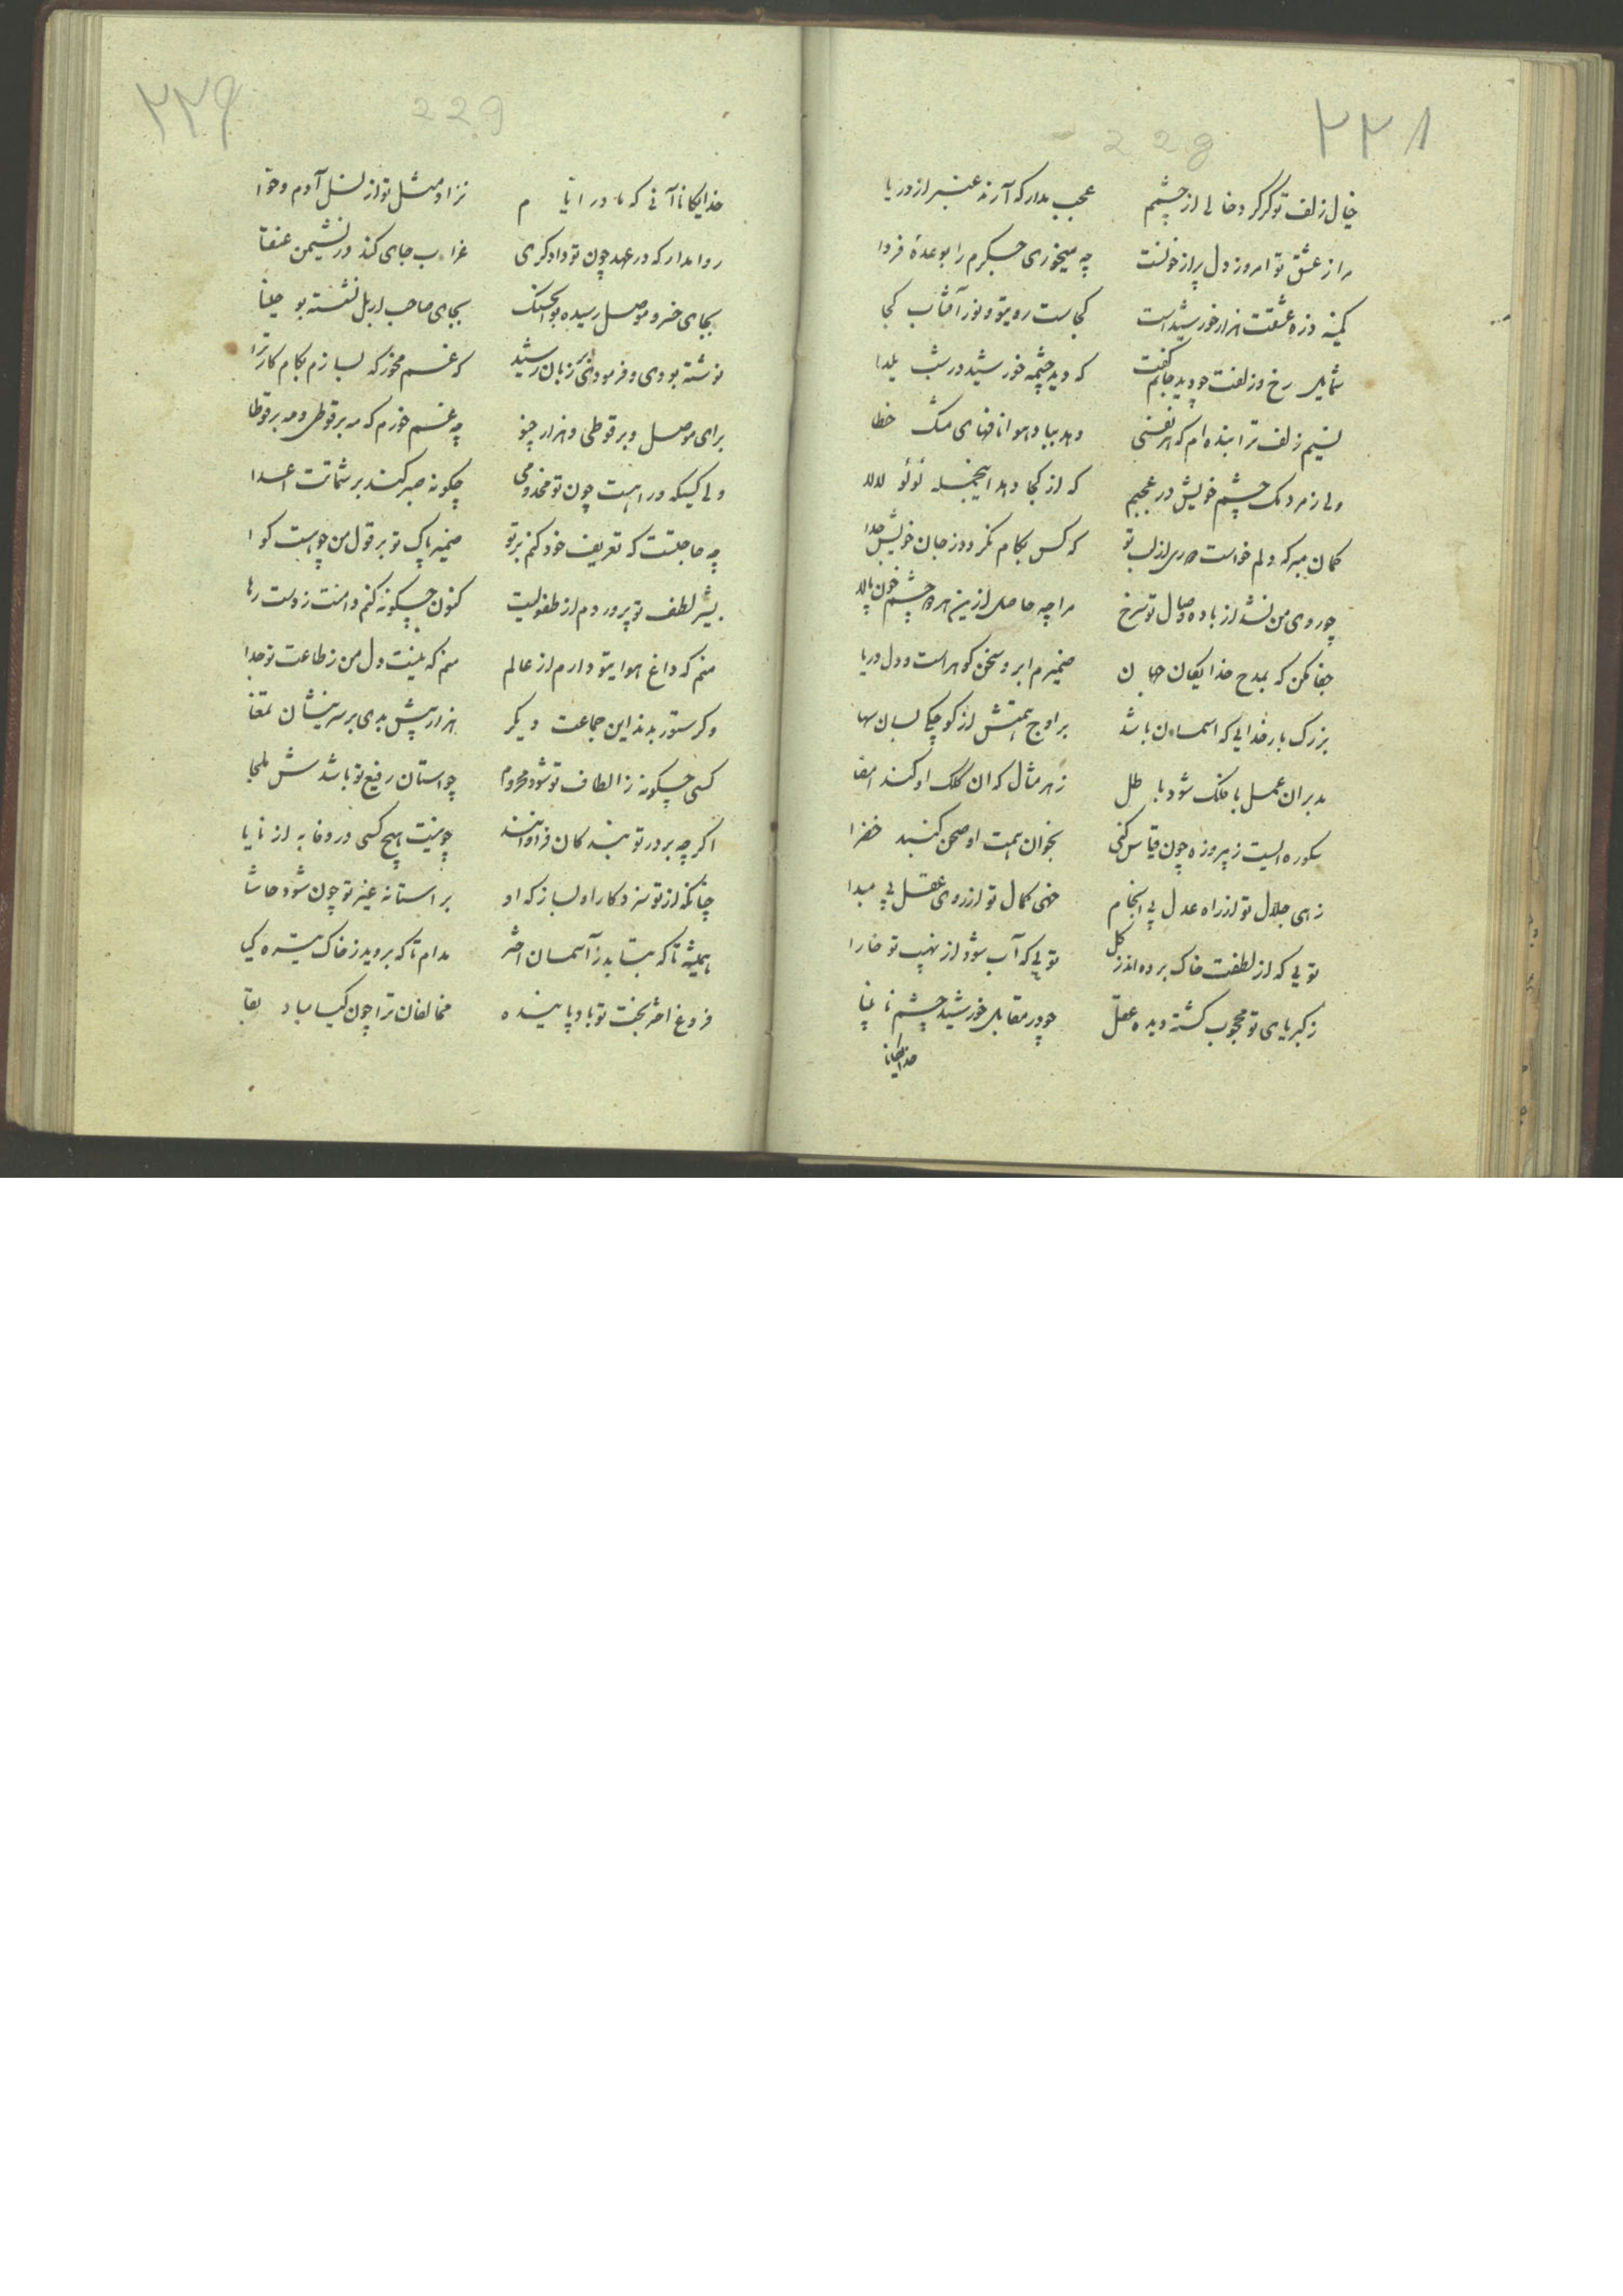 ۲۲۸
228
خیال زلف تو گر کرد خالی از چشمم عجب مدار که آرند عنبر از دریا
مرا ز عشق تو امروز دل پر از خونست چه میخوری جگرم را بوعدهٔ فردا
کمینه ذره عشقت هزار خورشید است کجاست رویتو و نور آفتاب کجا
شمایل رخ و زلفت چو دید جانم گفت که دید چشمه خورشید در شب یلدا
نسیم زلف ترا بنده‌ام که هر نفسی دهد بباد هوا نافهای مشک خطا
ولی ز مردمک چشم خویش در عجبم که از کجا دهد اینجمله لؤلؤ لالا
گمان مبر که دلم خواست از لب تو که کس بکام نگردد ز جان خویش جدا
چو روی من نشد از باده وصال تو سرخ مرا چه حاصل ازین هر دو چشم خون پالا
جفا مکن که بمدح خدایگان جهان ضمیرم ابر و سخن گوهر است و دل دریا
بزرگ بار خدایی که آسمان باشد بر اوج همتش از کوچکی بسان سها
بدان عمل با فلک شود باطل ز هر مثال که آن کلک او کند امضا
سکوره ایست ز پیروزه چون قیاس کنی بخوان همت او صحن گنبد خضرا
زهی جلال تو از راه عدل بی انجام خهی کمال تو از روی عقل بی مبدا
تویی که از لطفت خاک برده اندر گل تویی که آب شود از نهیب تو خارا
ز کبریای تو محجوب گشته دیده عقل چو در مقابل خورشید چشم نابینا
خدایگانا
۲۲۹
229
خدایگانا آنی که مادر ایام نزاد مثل تو از نسل آدم و حوا
روا مدار که در عهد چون تو دادگری غراب جای کند در نشیمن عنقا
بجای خسرو موصل رسیده بوالحسنک بجای صاحب اربل نشسته بو
نوشته بودی و فرمودی بر زبان رشید که غم مخور که بسازم بکام کار ترا
برای موصل و برقوطی و هزار چنو چه غم خورم که مه برقوطی و مه برقوطا
ولی کسیکه ورا هست چون تو مخدومی چگونه صبر کند بر شماتت اعدا
چه حاجتست که تعریف خود کنم بر تو ضمیر پاک تو بر قول من چو هست گوا
بشیر لطف تو پروردم از طفولیت کنون چگونه کنم دامنت ز دست رها
منم که داغ هوایتو دارم از عالم منم که نیست دل من ز طاعت تو جدا
وگر ستور بدند این جماعت دیگر هزار پیش بدی بر سرینشان تمغا
کسی چگونه ز الطاف تو شود محروم چو استان رفیع تو باشدش ملجا
اگر چه بر در تو بندگان فراوانند چو نیست هیچ کسی در وفا به از نایا
چنانکه از تو سزد کار او بساز که او بر استانه غیر تو چون شود حاشا
همیشه تا که بتابد ز آسمان اختر مدام تا که بروید ز خاک تیره گیا
فروغ اختر بخت تو باد پاینده مخالفان ترا چون گیا مباد بقا